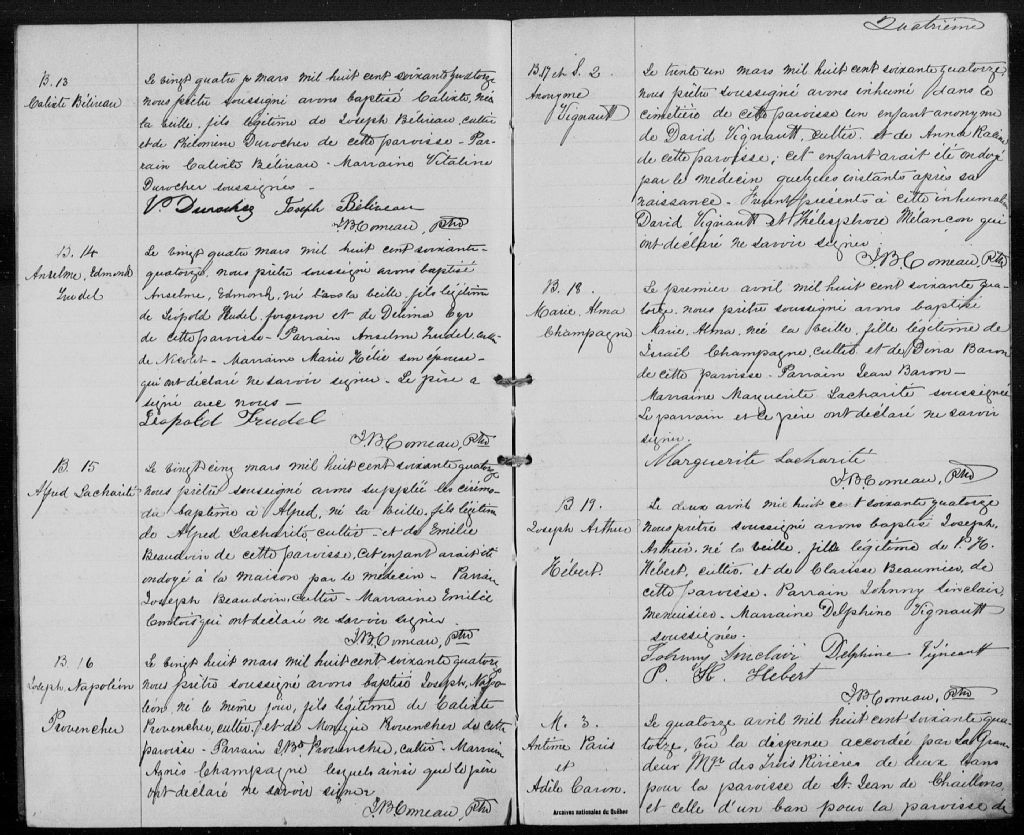 B. 13
Calixte Béliveau
Le vingt quatre mars mil huit cent soixante quatorze
nous prêtre soussigné avons baptisé Calixte, né
la veille, fils légitime de Joseph Béliveau, cultir
et de Philomène Durocher de cette paroisse - Par-
rain Calixte Béliveau - Marraine Vitaline
Durocher soussignés -
V. Durocher Joseph Béliveau
J. B. Comeau, Ptre
B. 14
Anselme, Edmond
Trudel
Le vingt quatre mars mil huit cent soixante-
quatorze, nous prêtre soussigné avons baptisé
Anselme, Edmond, né la veille, fils légitime
de Léopold Trudel, forgeron et de Cyr
de cette paroisse - Parrain Anselme Trudel, cult.
de Nicolet - Marraine Marie Hélie son épouse -
qui ont déclaré ne savoir signer - Le père a
signé avec nous -
Léopold Trudel
J. B. Comeau, Ptre
B. 15
Alfred Lacharité
Le vingt cinq mars mil huit cent soixante quatorze
nous prêtre soussigné avons supplée les cérémo-
du baptême à Alfred, né la veille, fils légitime
de Alfred Lacharité, cultir - et de Emilie
Beaudoin de cette paroisse, cet enfant avait été
ondoyé à la maison par le médecin - Parrain
Joseph Beaudoin, cultir - Marraine Emilie
qui ont déclaré ne savoir signer
J. B. Comeau, Ptre
B. 16
Joseph, Napoléon
Provencher
Le vingt huit mars mil huit cent soixante quatorze
nous prêtre soussigné avons baptisé Joseph, Napo-
léon né le même jour, fils légitime de Calixte
Provencher, cultir, et de Monique Provencher de cette
paroisse - Parrain J. Bte Provencher, cultir - Marraine
Agnès Champagne lesquels ainsi que le père
ont déclaré ne savoir signer
J. B. Comeau, Ptre
Quatrième
B. 17 et S. 2
Anonyme
Vignault
Le trente un mars mil huit cent soixante quatorze,
nous prêtre soussigné avons inhumé dans le
cimetière de cette paroisse un enfant anonyme
de David Vignault, cultir. et de Anna Racine
de cette paroisse; cet enfant avait été ondoyé
par le médecin quelques instants après sa
naissance - Furent présents à cette inhumation
David Vignault et Thélesphore Mélançon qui
ont déclaré ne savoir signer
J. B. Comeau, Ptre
B. 18
Marie, Alma
Champagne
Le premier avril mil huit cent soixante qua-
torze, nous prêtre soussigné avons baptisé
Marie, Alma, née la veille, fille légitime de
Israïl Champagne, cultir et de Dina Baron
de cette paroisse - Parrain Jean Baron -
Marraine Marguerite Lacharité soussignée
Le parrain et le père ont déclaré ne savoir
signer.
Marguerite Lacharité
J. B. Comeau, Ptre
B 19.
Joseph Arthur
Hébert.
Le deux avril mil huit cent soixante quatorze
nous prêtre soussigné avons baptisé Joseph,
Arthur, né la veille, fille légitime de P. H.
Hébert, cultir, et de Clarisse Beaumier, de
cette paroisse. Parrain Johnny Sinclair,
menuisier - Marraine Delphine Vignault
soussignés.
Johnny Sinclair Delphine
P. H. Hebert
J. B. Comeau, Ptre
M. 3.
Antoine Paris
et
Adèle Caron.
Le quatorze avril mil huit cent soixante qua-
torze, Vu la dispense accordée par Sa Gran-
deur Mgr. des Trois Rivières de deux bans
pour la paroisse de St. Jean de Chaillons,
et celle d'un ban pour la paroisse de
Archives nationales du Québec